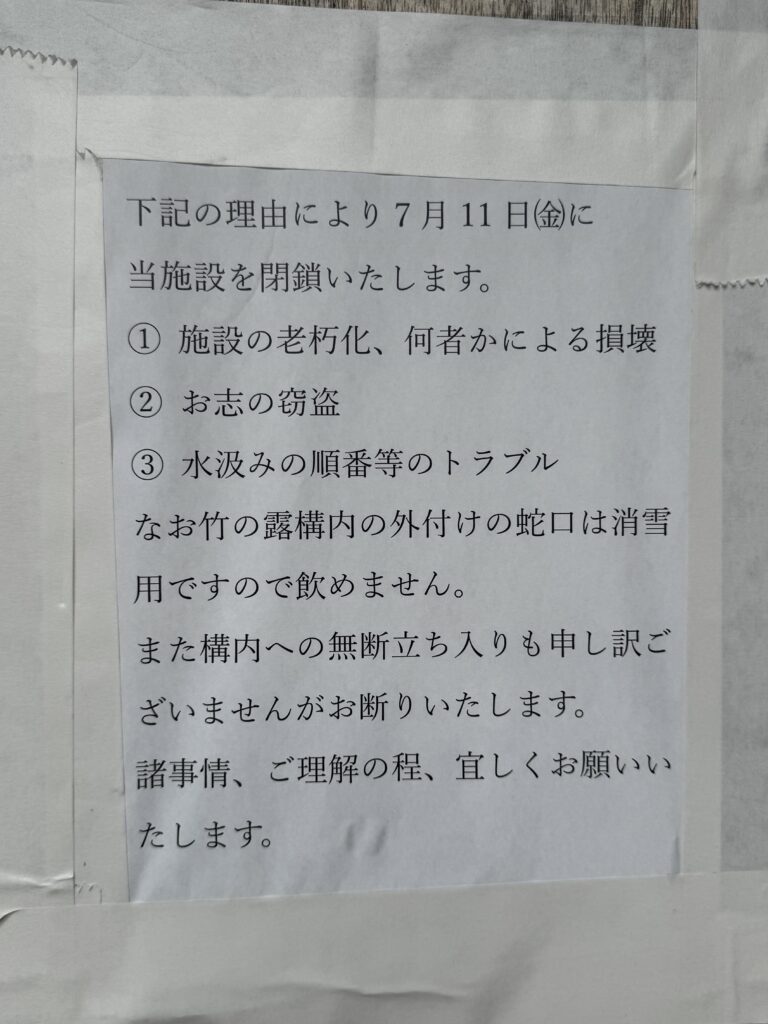 下記の理由により7月11日㈮に
当施設を閉鎖いたします。
① 施設の老朽化、何者かによる損壊
② お志の窃盗
③ 水汲みの順番等のトラブル
なお竹の露構内の外付けの蛇口は消雪
用ですので飲めません。
また構内への無断立ち入りも申し訳ご
ざいませんがお断りいたします。
諸事情、ご理解の程、宜しくお願いい
たします。